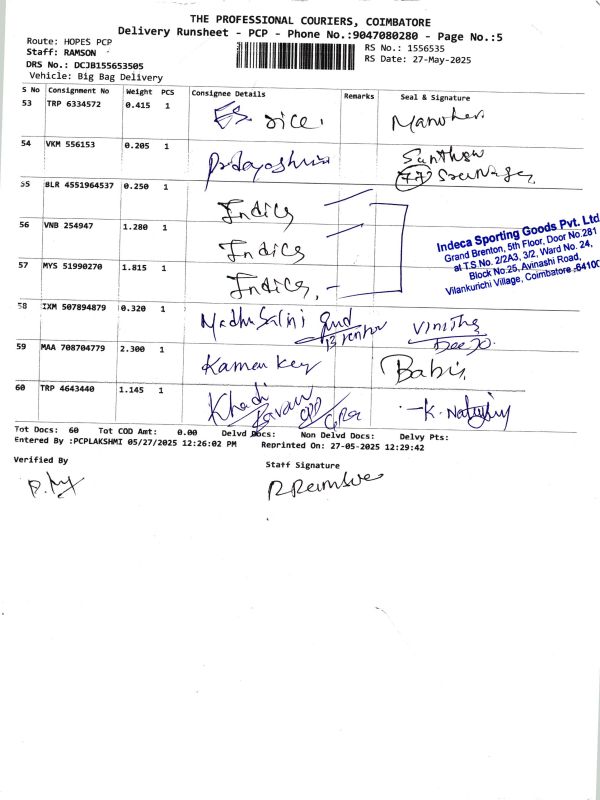 THE PROFESSIONAL COURIERS, COIMBATORE
Delivery Runsheet - PCP - Phone No.:9047080280 - Page No.:5
Route: HOPES PCP
Staff: RAMSON
DRS No.: DCJB155653505
Vehicle: Big Bag Delivery
RS No.: 1556535
RS Date: 27-May-2025
S No Consignment No Weight PCS Consignee Details Remarks Seal & Signature
53 TRP 6334572 0.415 1 Manohar
54 VKM 556153 0.205 1
77
55 BLR 4551964537 0.250 1 Indica
56 VNB 254947 1.280 1 Indica
57 MYS 51990270 1.815 1 Indica
Indeca Sporting Goods Pvt. Ltd
Grand Brenton, 5th Floor, Door No.281
at T.S No. 2/2A3, 3/2, Ward No. 24,
Block No.25, Avinashi Road,
Vilankurichi Village, Coimbatore -64100
58 IXM 507894879 0.320 1 Madhu Salini Vinitha
59 MAA 708704779 2.300 1 Babis
60 TRP 4643440 1.145 1 Khadi
Tot Docs: 60 Tot COD Amt: 0.00 Delvd Docs: Non Delvd Docs: Delvy Pts:
Entered By :PCPLAKSHMI 05/27/2025 12:26:02 PM Reprinted On: 27-05-2025 12:29:42
Verified By
Staff Signature